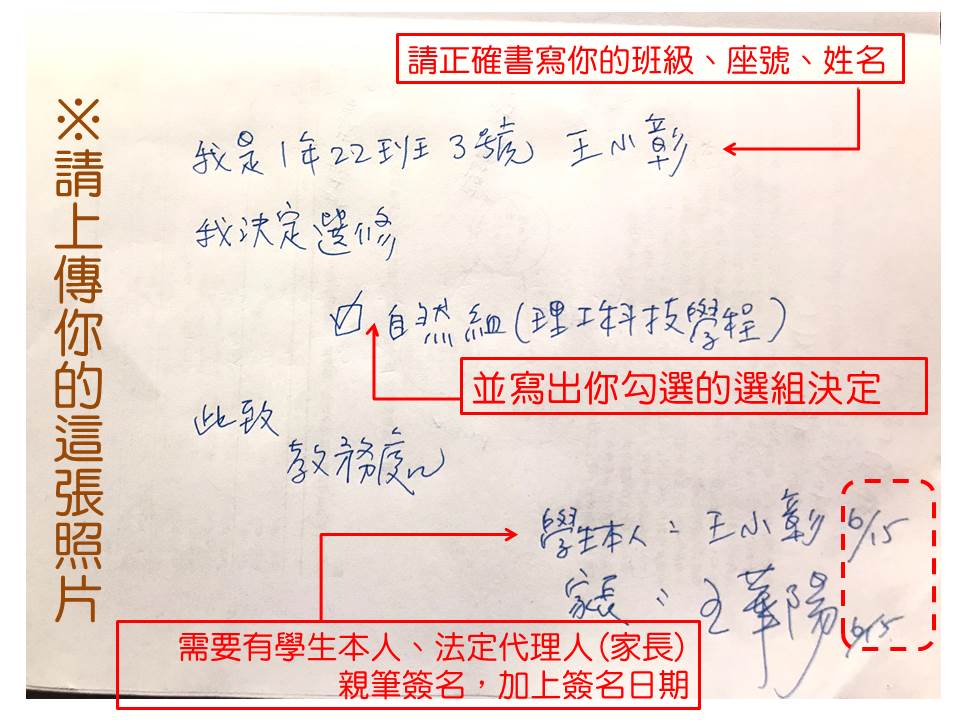 請正確書寫你的班級、座號、姓名
※請上傳你的這張照片
我是1年22班3號 王小彰
我決定選修
☑自然組(理工科技學程)
並寫出你勾選的選組決定
此致
教務處
學生本人：王小彰 6/15
家長：王華陽 6/15
需要有學生本人、法定代理人(家長)
親筆簽名，加上簽名日期